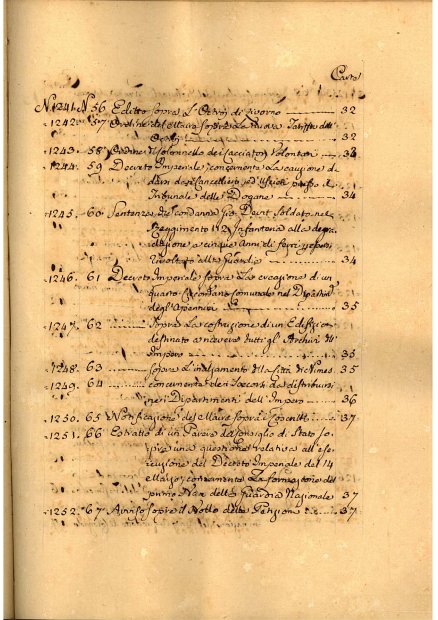 Carte
N. 1241. N. 56 Editto sopra l'Octroi di Livorno 32
1242. 57 Ordine del Maire sopra la nuova Tariffa dell'
Octroi 32
1243. 58 Ordine Colonnello dei Cacciatori Volontari 34
1244. 59 Decreto Imperiale concernente la cauzione di
darsi dai Cancellieri, ed Uscieri presso il
Tribunale delle Dogane 34
1245. 60 Sentenza che condanna Gio. Soldato nel
Reggimento 112 Infanteria alla degra
dazione a cinque Anni di ferri per essersi
rivoltato alla Guardia 34
1246. 61 Decreto Imperiale sopra la erezione di un
quarto Circondario comunale nel Dipartim.
degl'Appennini 35
1247. 62 sopra la costruzione di un Edifizio
destinato a ricevere tutti gl'Archivi dell'
Impero 35
1248. 63 sopra l'inalzamento della Città di Nimes 35
1249. 64 concernente dei Soccorsi da distribuirsi
nei Dipartimenti dell'Impero 36
1250. 65 Notificazione del Maire sopra i Coscritti 37
1251. 66 Estratto di un Parere del Consiglio di Stato so
pra una questione relativa all'ese
cuzione del Decreto Imperiale del 14
Marzo, concernente la formazione del
primo Ban della Guardia Nazionale 37
1252. 67 Avviso sopra il Nollo delle 37